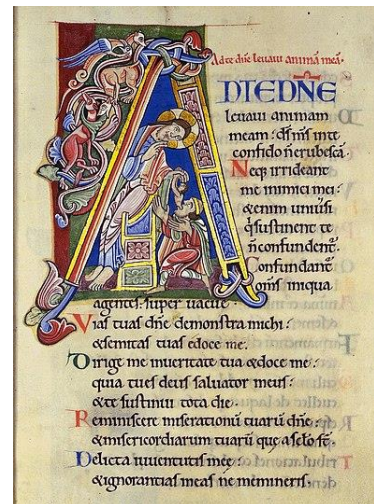 Ad te dñe levavi animā meā.
AD TE DÑE
levavi animam
meam: dš mš in te
confido ñ erubescā.
Neq; irrideant
me inimici mei:
&enim univsi
q̄ sustinent te
ñ confundent̄.
Confundant̄
om̄s iniqua
agentes: super vacue.
Vias tuas dñe demonstra michi:
& semitas tuas edoce me.
Dirige me in veritate tua & doce me:
quia tu es deus salvator meus:
& te sustinui tota die.
Reminiscere miserationū tuarū dñe:
& misericordiarum tuarū que a sclo st̄.
Delicta iuventutis meę:
& ignorantias meas ne memineris.